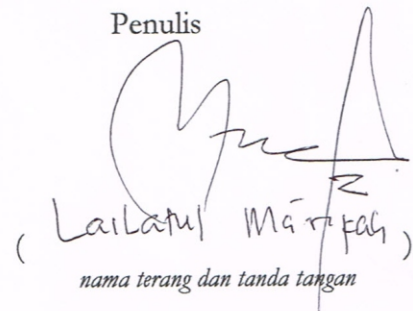 Penulis
( Lailatul Ma'rifah )
nama terang dan tanda tangan